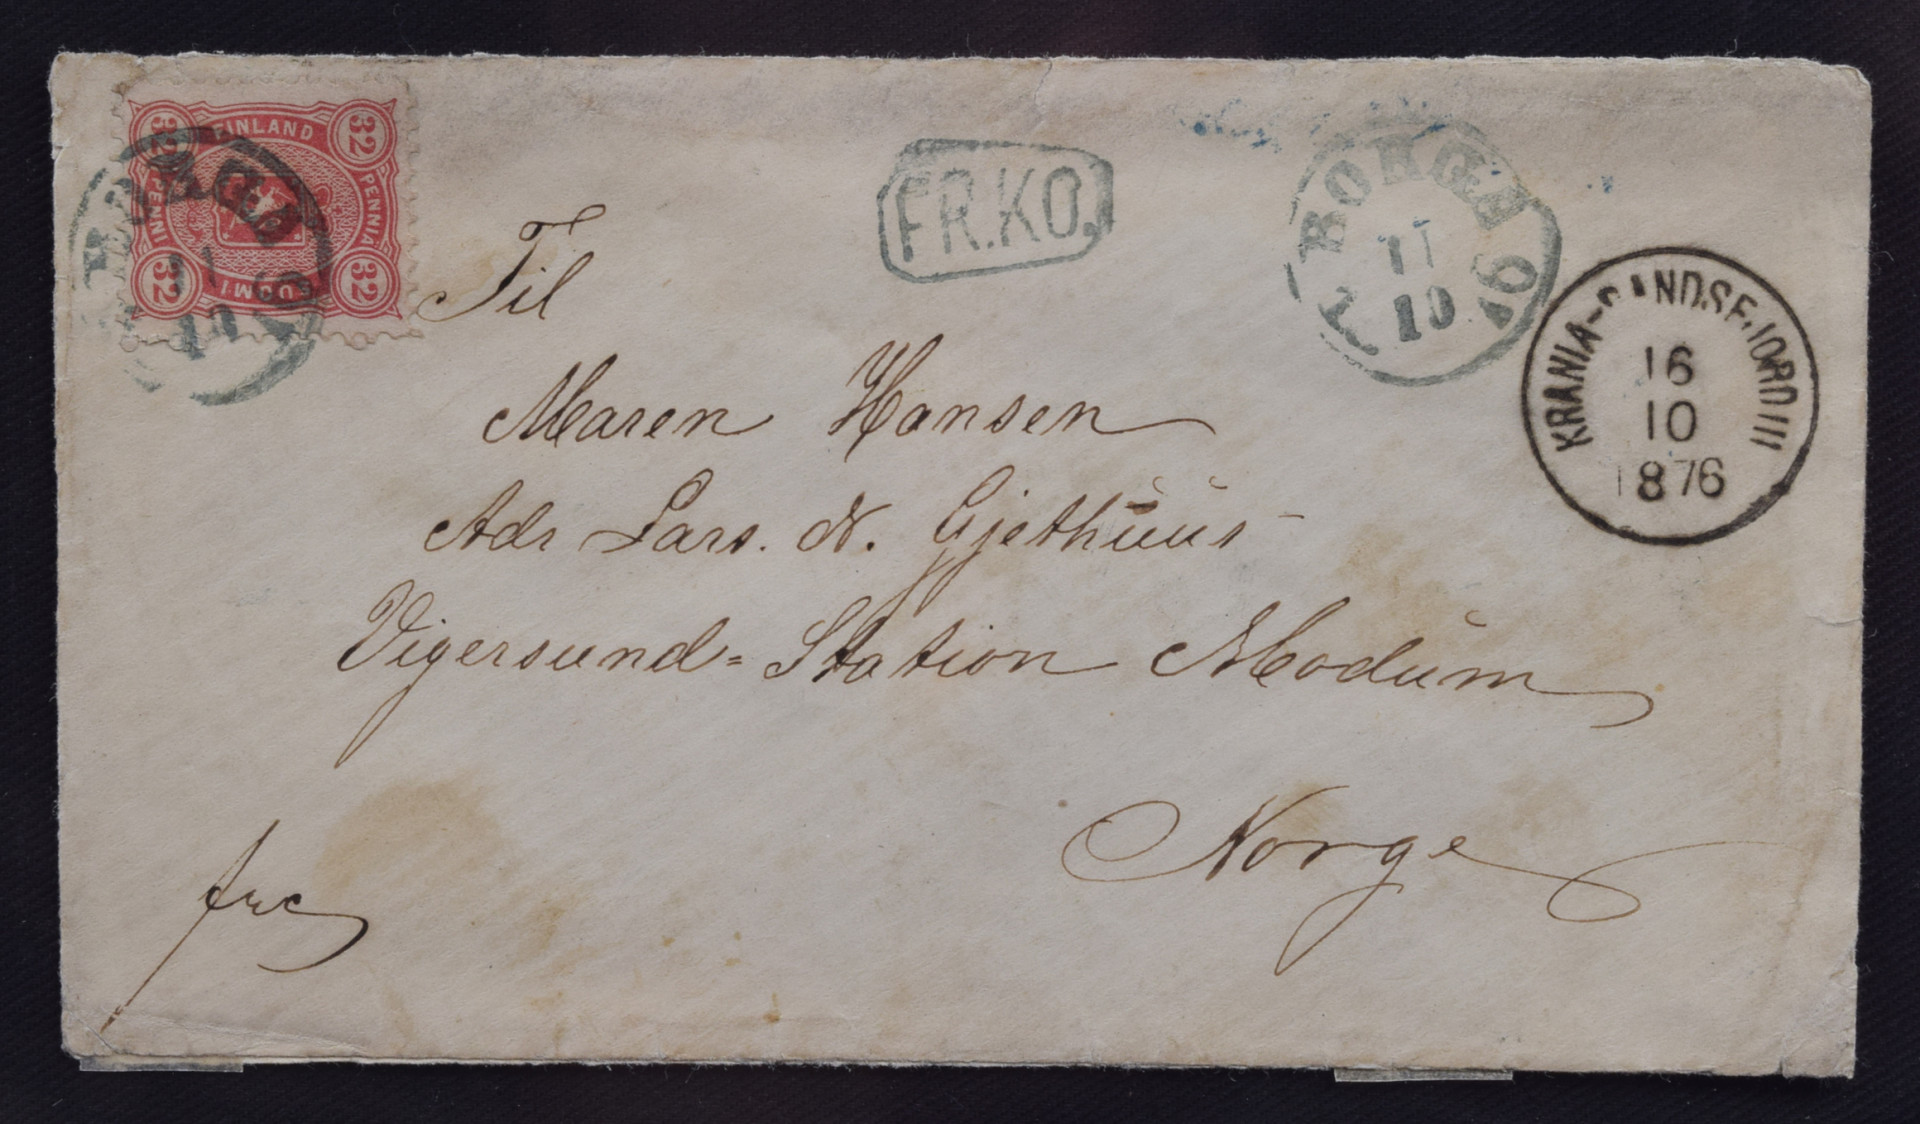 32 FINLAND 32
PENNI PENNIÄ
32 SUOMI 32
11
10
FR.KO.
BORGÅ
11
10
KRANIA-SANDSEFJORD III
16
10
1876
Til
Maren Hansen
Adr Lars. N. Gjethuus
Vigersund= Station Modum
Norge